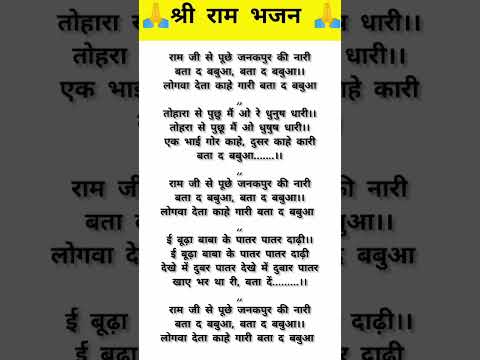 🙏श्री राम भजन 🙏
राम जी से पूछे जनकपुर की नारी
बता द बबुआ, बता द बबुआ।।
लोगवा देता काहे गारी बता द बबुआ
,,
तोहारा से पुछु मैं ओ रे धुनुष धारी।।
तोहरा से पुछु मैं ओ धुषुष धारी।।
एक भाई गोर काहे, दुसर काहे कारी
बता द बबुआ.......।।
,,
राम जी से पूछे जनकपुर की नारी
बता द बबुआ, बता द बबुआ।।
लोगवा देता काहे गारी बता द बबुआ
,,
ई बूढ़ा बाबा के पातर पातर दाढ़ी।।
ई बूढ़ा बाबा के पातर पातर दाढ़ी
देखे में दुबर पातर देखे में दुबार पातर
खाए भर था री, बता दें.........।।
,,
राम जी से पूछे जनकपुर की नारी
बता द बबुआ, बता द बबुआ।।
लोगवा देता काहे गारी बता द बबुआ